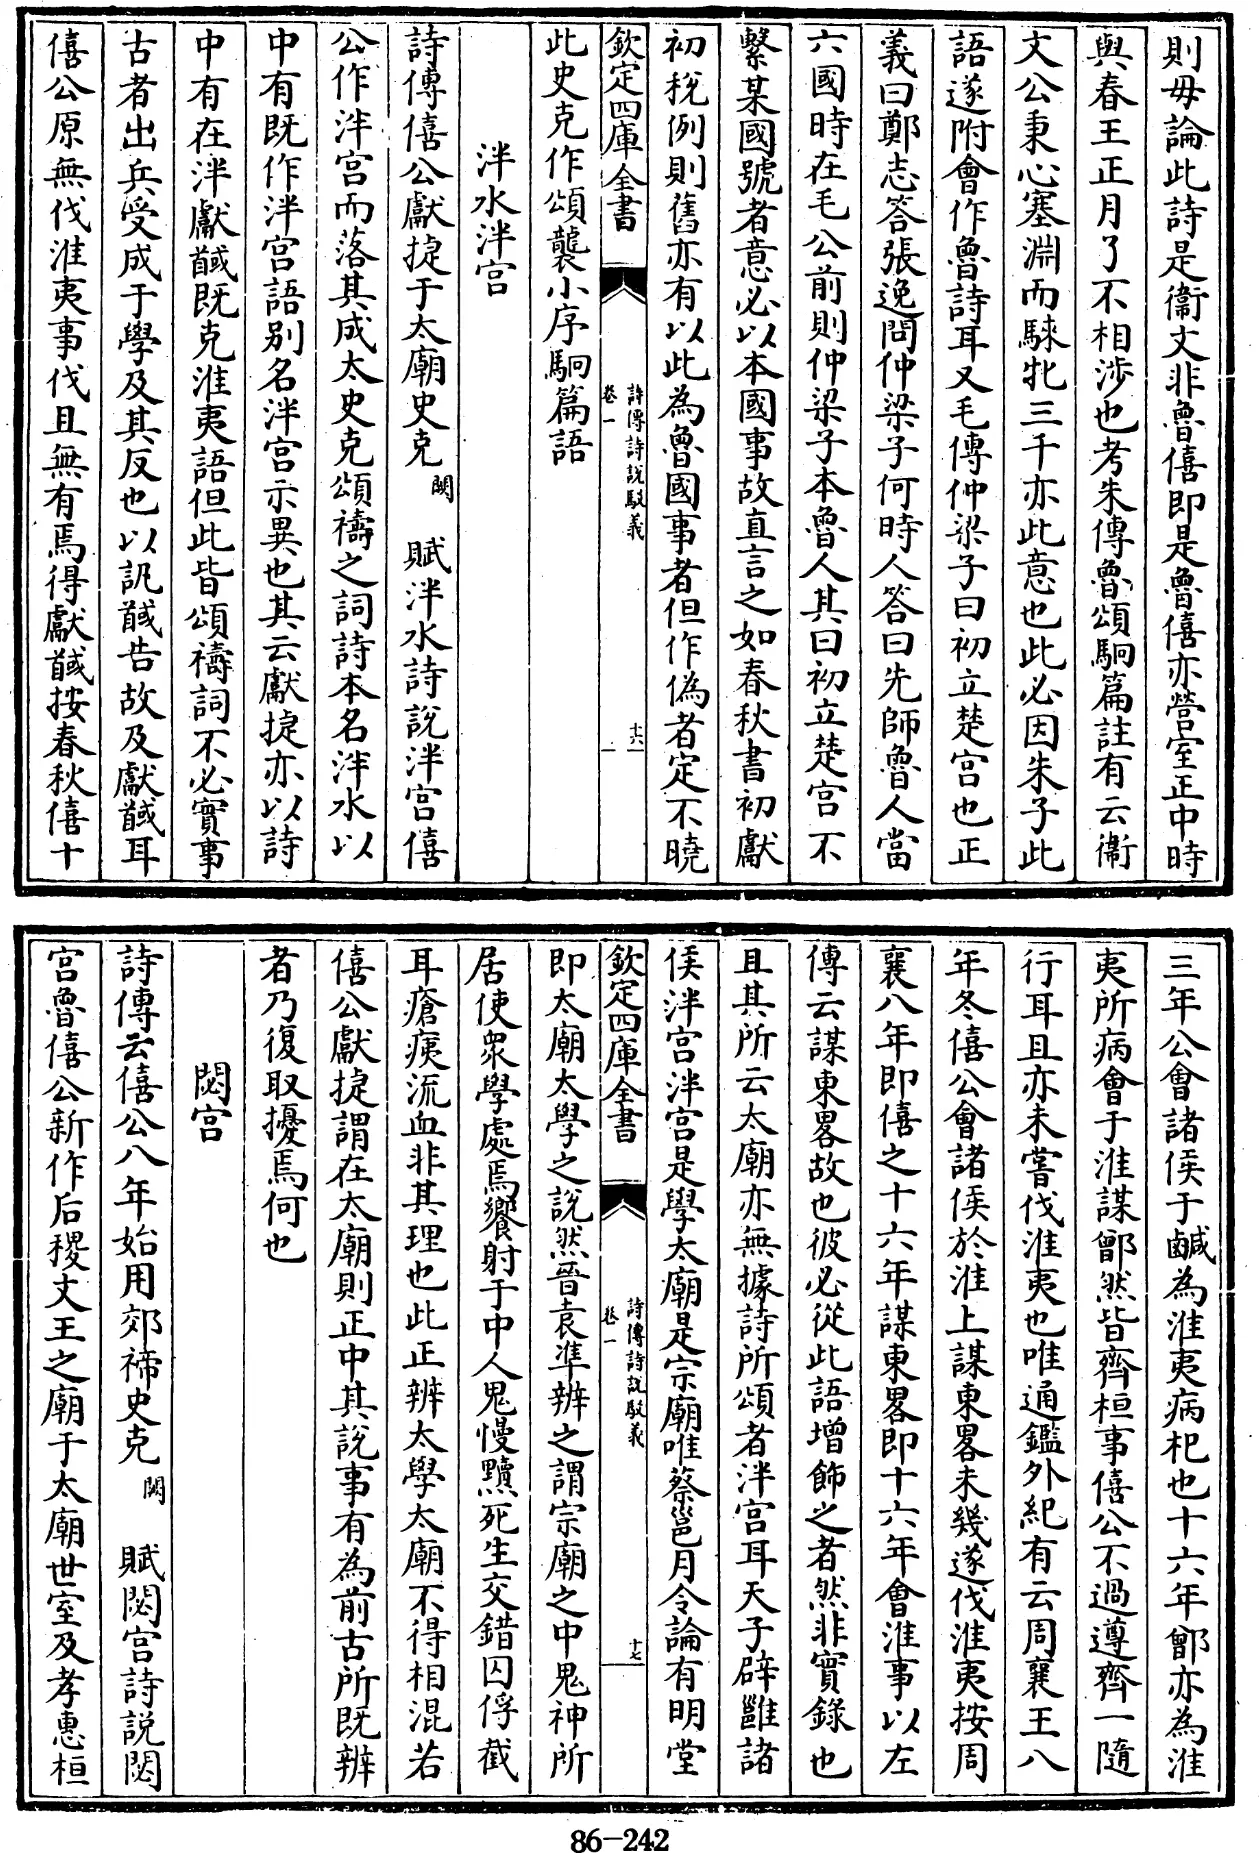 則毋論此詩是衞文非魯僖即是魯僖亦營室正中時
與春王正月了不相涉也考朱傳魯頌駉篇註有云衞
文公秉心塞淵而騋牝三千亦此意也此必因朱子此
語遂附會作魯詩耳又毛傳仲梁子曰初立楚宫也正
義曰鄭志答張逸問仲梁子何時人答曰先師魯人當
六國時在毛公前則仲梁子本魯人其曰初立楚宫不
繫某國號者意必以本國事故直言之如春秋書初獻
初稅例則舊亦有以此為魯國事者但作偽者定不曉
欽定四庫全書
詩傳詩說駁義
卷一
十六
此史克作頌襲小序駉篇語
泮水泮宫
詩傳僖公獻捷于太廟史克闕 賦泮水詩說泮宫僖
公作泮宫而落其成太史克頌禱之詞詩本名泮水以
中有既作泮宫語别名泮宫示異也其云獻捷亦以詩
中有在泮獻馘既克淮夷語但此皆頌禱詞不必實事
古者出兵受成于學及其反也以訊馘告故及獻馘耳
僖公原無伐淮夷事伐且無有焉得獻馘按春秋僖十
三年公會諸侯于鹹為淮夷病杞也十六年鄫亦為淮
夷所病會于淮謀鄫然皆齊桓事僖公不過遵齊一隨
行耳且亦未嘗伐淮夷也唯通鑑外紀有云周襄王八
年冬僖公會諸侯於淮上謀東畧未幾遂伐淮夷按周
襄八年即僖之十六年謀東畧即十六年會淮事以左
傳云謀東畧故也彼必從此語增飾之者然非實錄也
且其所云太廟亦無據詩所頌者泮宫耳天子辟雝諸
侯泮宫泮宫是學太廟是宗廟唯蔡邕月令論有明堂
欽定四庫全書
詩傳詩說駁義
卷一
十七
即太廟太學之說然晉袁準辨之謂宗廟之中鬼神所
居使衆學處焉饗射于中人鬼慢黷死生交錯囚俘截
耳瘡痍流血非其理也此正辨太學太廟不得相混若
僖公獻捷謂在太廟則正中其說事有為前古所既辨
者乃復取擾焉何也
閟宫
詩傳云僖公八年始用郊禘史克闕 賦閟宫詩説閟
宫魯僖公新作后稷文王之廟于太廟世室及孝惠桓
86-242